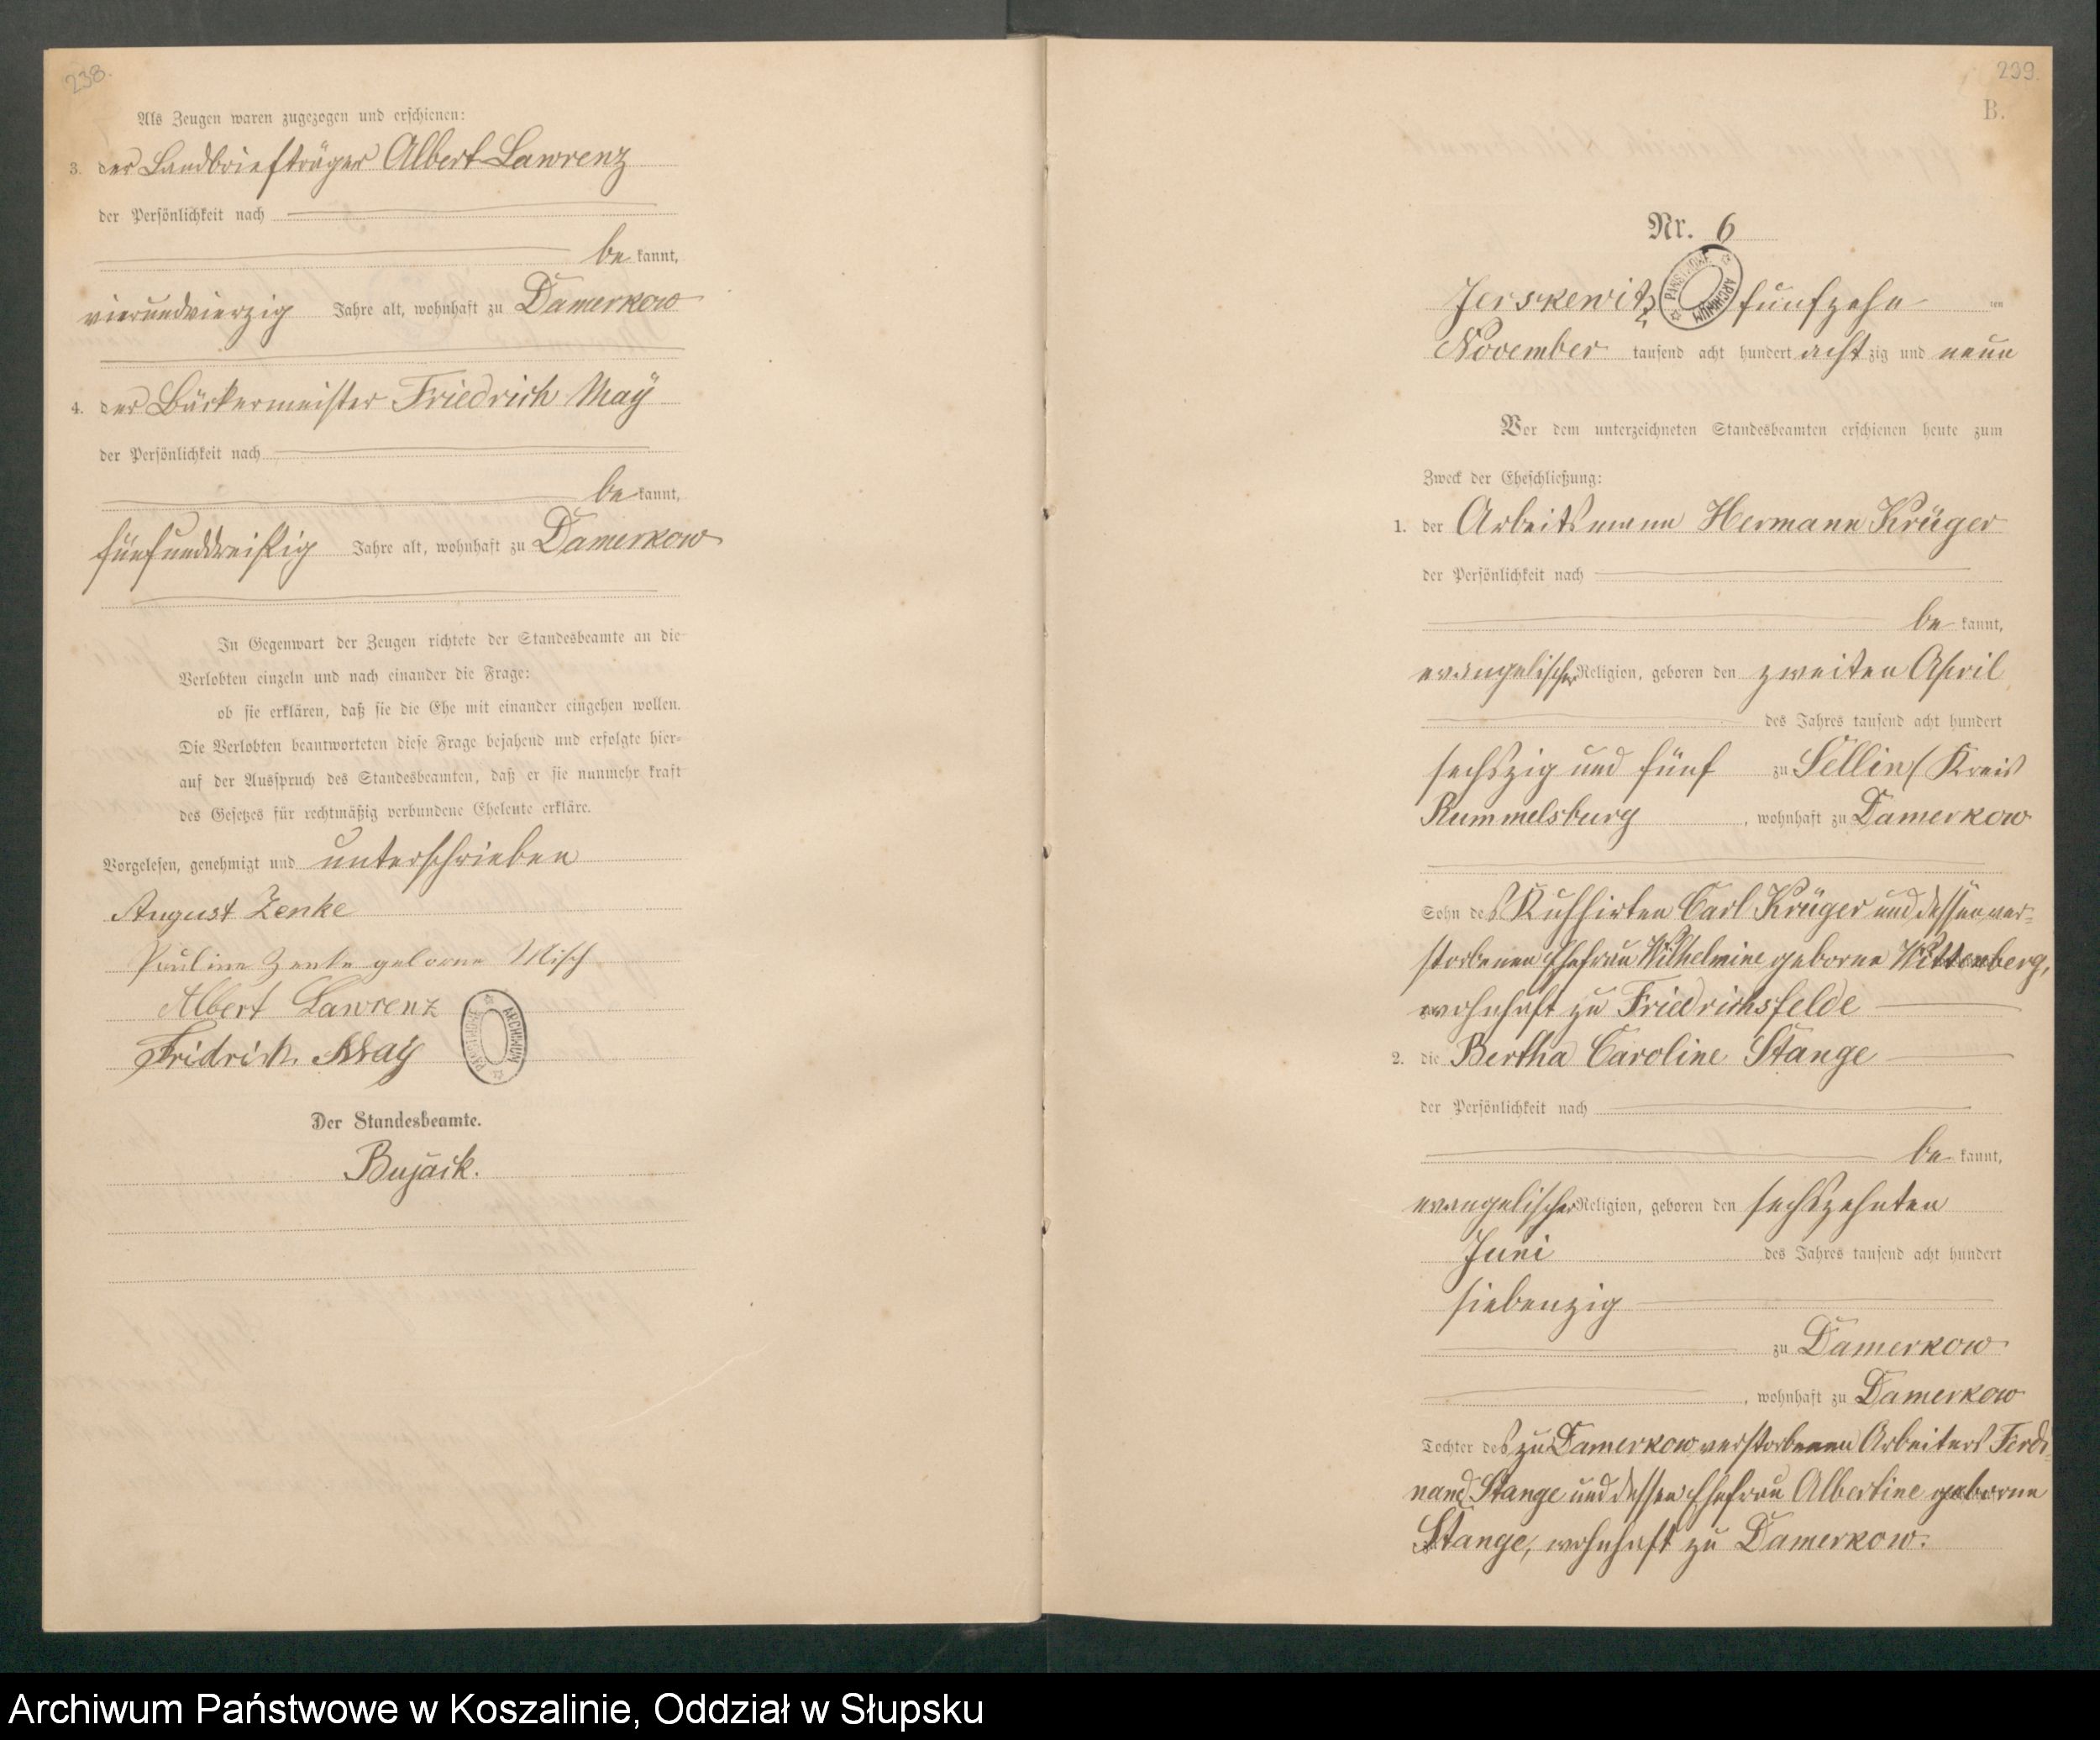 238.
Als Zeugen waren zugezogen und erschienen:
3. der Landbriefträger Albert Lawrenz
der Persönlichkeit nach
be kannt,
vierundvierzig Jahre alt, wohnhaft zu Damerkow
4. der Bäckermeister Friedrich Maÿ
der Persönlichkeit nach
be kannt,
fünfunddreißig Jahre alt, wohnhaft zu Damerkow
In Gegenwart der Zeugen richtete der Standesbeamte an die
Verlobten einzeln und nach einander die Frage:
ob sie erklären, daß sie die Ehe mit einander eingehen wollen.
Die Verlobten beantworteten diese Frage bejahend und erfolgte hier-
auf der Ausspruch des Standesbeamten, daß er sie nunmehr kraft
des Gesetzes für rechtmäßig verbundene Eheleute erkläre.
Vorgelesen, genehmigt und unterschrieben
August Zenke
Pauline Zenke geborne Misch
Albert Lawrenz
Fridrich Maÿ
ARCHIWUM PAŃSTWOWE
Der Standesbeamte.
Bujack.
239.
B.
Nr. 6
ARCHIWUM PAŃSTWOWE
Jerskewitz, fünfzehn ten
November tausend acht hundert acht zig und neun
Vor dem unterzeichneten Standesbeamten erschienen heute zum
Zweck der Eheschließung:
1. der Arbeitsmann Hermann Krüger
der Persönlichkeit nach
be kannt,
evangelischer Religion, geboren den zweiten April
des Jahres tausend acht hundert
sechszig und fünf zu Sellin, Kreis
Rummelsburg, wohnhaft zu Damerkow
Sohn des Kuhhirten Carl Krüger und dessen ver-
storbenen Ehefrau Wilhelmine geborne Wittenberg,
wohnhaft zu Friedrichsfelde
2. die Bertha Caroline Stange
der Persönlichkeit nach
be kannt,
evangelischer Religion, geboren den sechszehnten
Juni des Jahres tausend acht hundert
siebenzig
zu Damerkow
, wohnhaft zu Damerkow
Tochter des zu Damerkow verstorbenen Arbeiters Ferdi-
nand Stange und dessen Ehefrau Albertine geborne
Stange, wohnhaft zu Damerkow.
Archiwum Państwowe w Koszalinie, Oddział w Słupsku